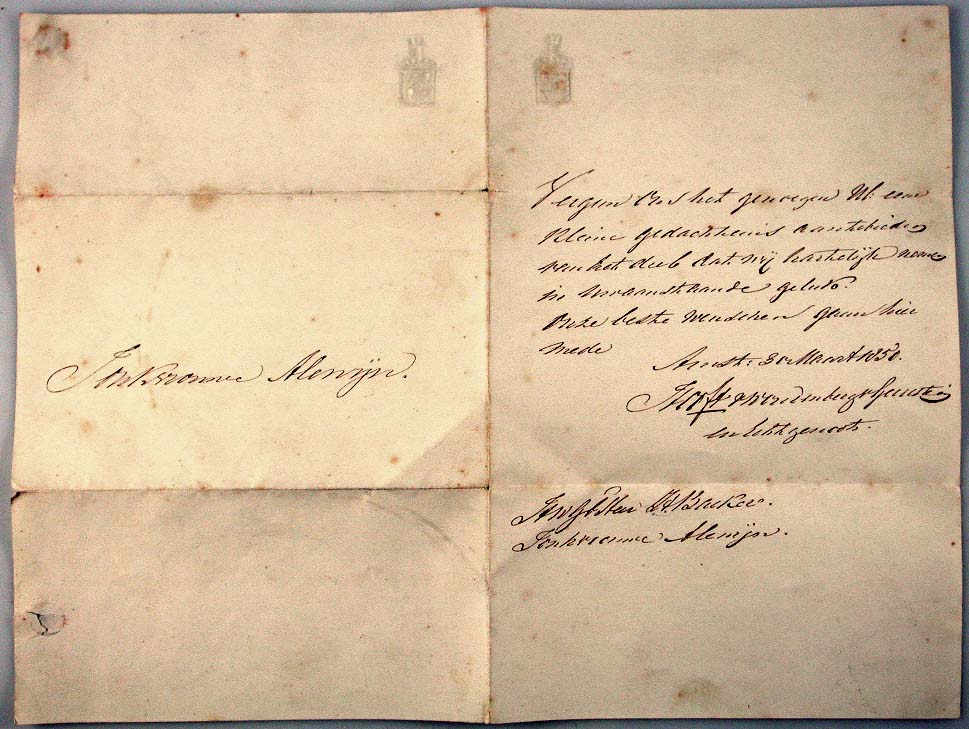 Jonkvrouwe Alewijn.
Vergun Ons het genoegen UE: eene
kleine gedachtenis aantebieden
van het deel dat wij hartelijk nemen
in Uw aanstaande geluk.
Onze beste wenschen gaan hier
mede
Amst: 30 Maart 1850.
Hooft v Woudenberg v Geerestein
en Echtgenoote.
F. Backer.
Jonkvrouwe Alewijn.